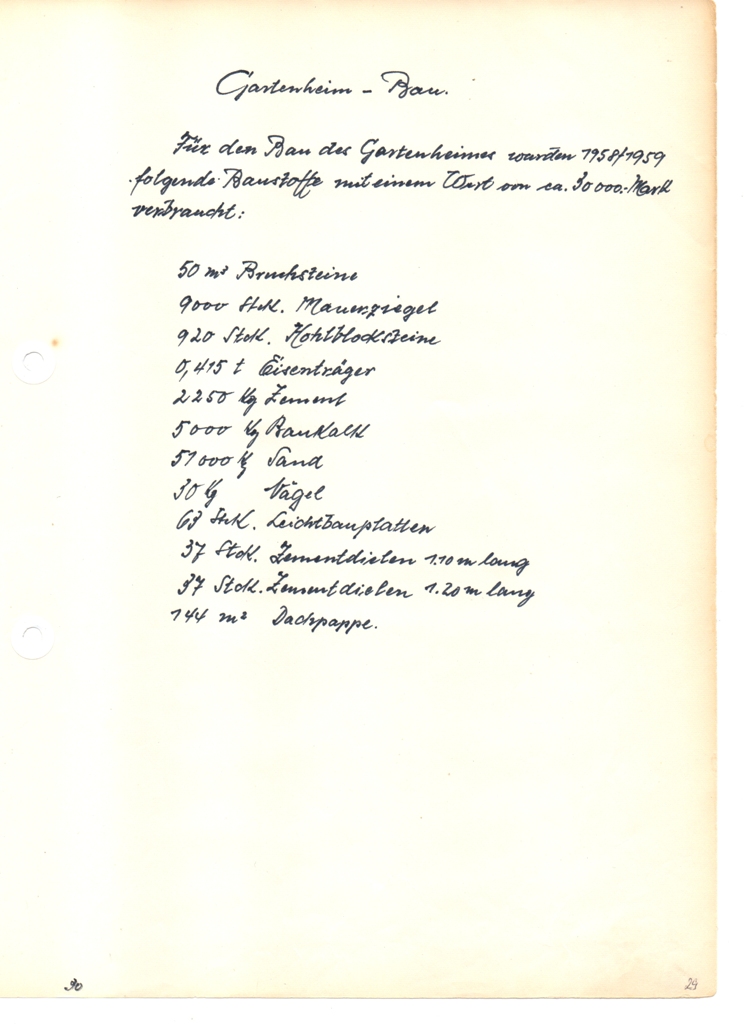 Gartenheim - Bau.
Für den Bau des Gartenheimes wurden 1958/1959
folgende Baustoffe mit einem Wert von ca. 30 000.- Mark
verbraucht:
50 m³ Bruchsteine
9000 Stck. Mauerziegel
920 Stck. Hohlblocksteine
0,415 t Eisenträger
2250 Kg Zement
5000 Kg Baukalk
51000 Kg Sand
30 Kg Nägel
63 Stck. Leichtbauplatten
37 Stck. Zementdielen 1.10 m lang
37 Stck. Zementdielen 1.20 m lang
144 m² Dachpappe.
30
29